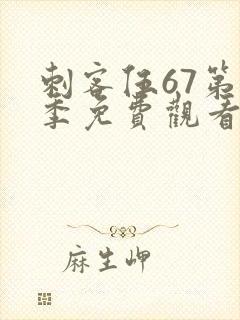 刺客伍67第
季免費觀看
麻生岬